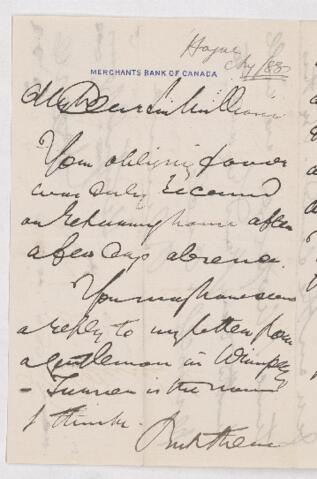 Hague
/88
MERCHANTS BANK OF CANADA
My Dear Sir William
Your obliging favor
was duly received
on returning home after
a few days absence.
You may have seen
a reply to my letter from
a gentleman in Winnipeg
- Turner is the name
I think.